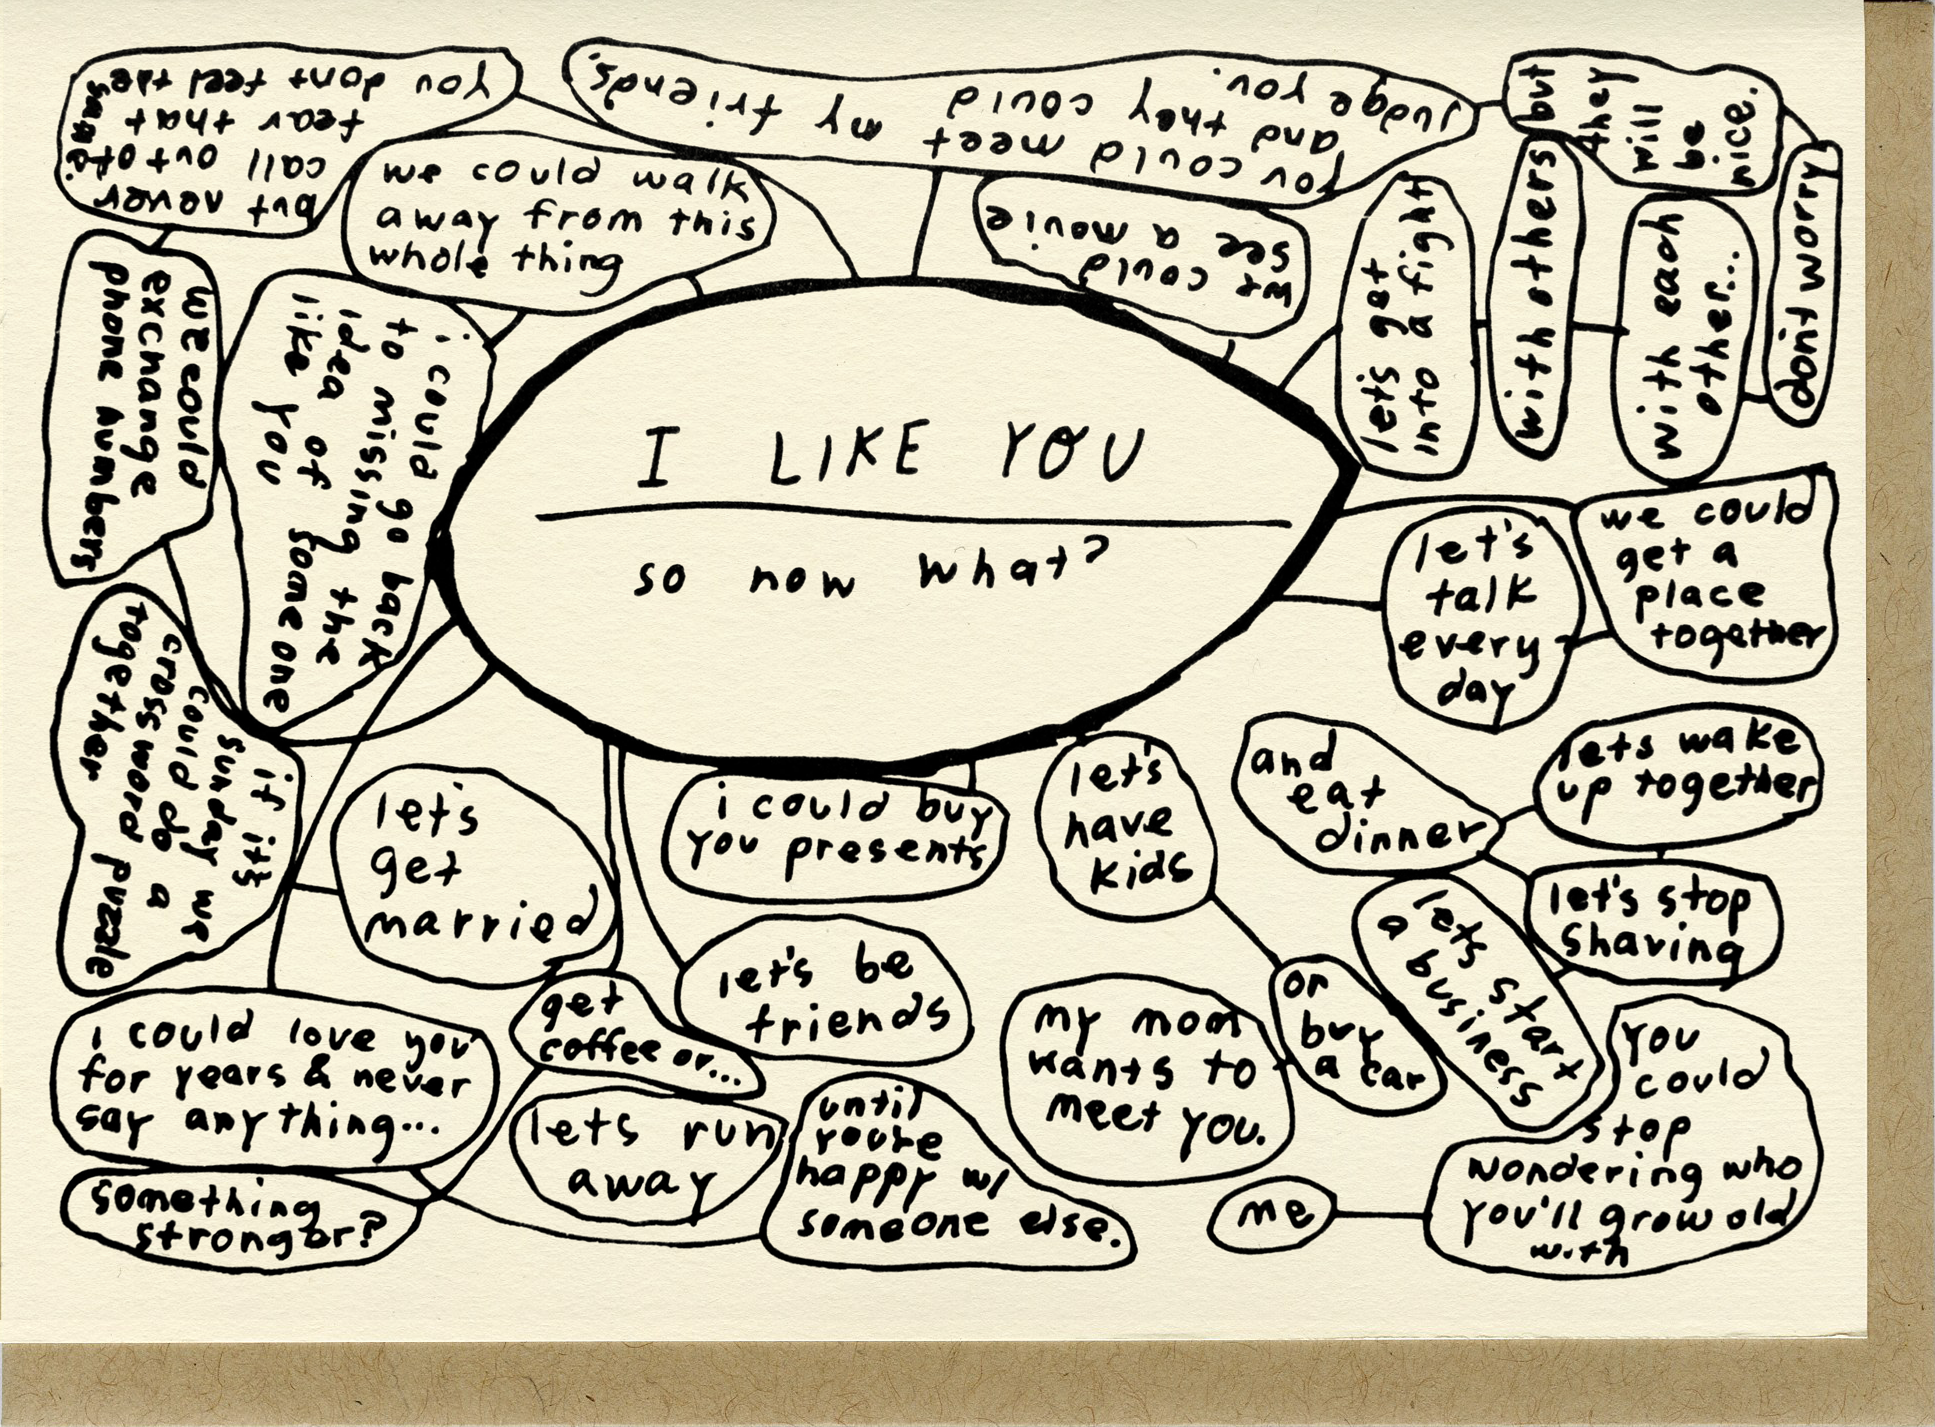 I LIKE YOU
so now what?
we could walk
away from this
whole thing
we could
exchange
phone numbers
but never
call out of
fear that
you dont feel the
same.
i could go back
to missing the
idea of someone
like you
if it's
sunday we
could do a
crossword puzzle
together
let's
get
married
i could love you
for years & never
say anything...
until
you're
happy w/
someone else.
get
coffee or...
something
stronger?
lets run
away
let's be
friends
i could buy
you presents
let's
have
kids
or
buy
a car
my mom
wants to
meet you.
let's
talk
every
day
we could
get a
place
together
lets wake
up together
and
eat
dinner
let's stop
shaving
lets start
a business
you
could
stop
wondering who
you'll grow old
with
me
we could
see a movie
you could meet my friends.
and they could
judge you.
but
they
will
be
nice.
dont worry
let's get
into a fight
with others
with each
other...